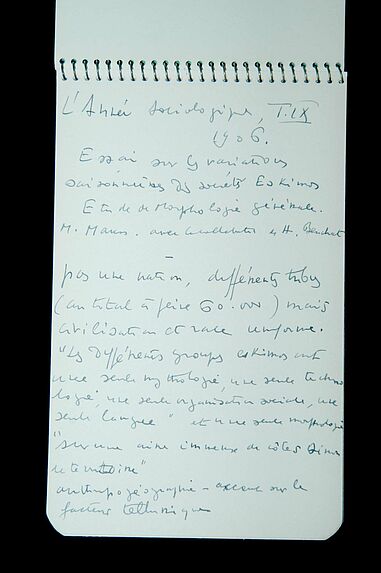 L'Année sociologique, T. IX
1906.
Essai sur les variations
saisonnières des sociétés Eskimos
Etude de Morphologie générale.
M. Mauss. avec collaboration de H. Beuchat
pas une nation, différents tribus
(au total à peine 60.000) mais
civilisation et race uniforme.
"Les différents groupes eskimos ont
une seule mythologie, une seule techno
logie, une seule organisation sociale, une
seule langue" et une seule morphologie
"sur une aire immense de côtes
et de territoire"
anthropogéographie - accent sur le
facteur tellurique